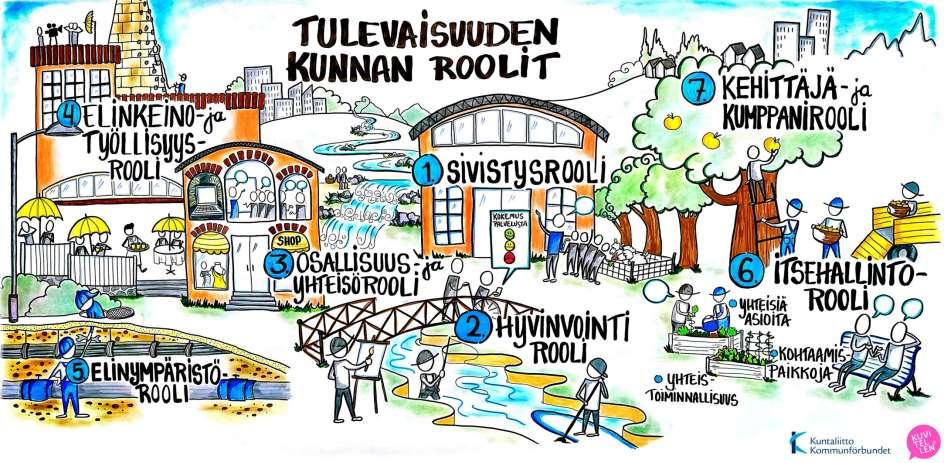 TULEVAISUUDEN
KUNNAN ROOLIT
1. SIVISTYSROOLI
2. HYVINVOINTI
ROOLI
3. OSALLISUUS- ja
YHTEISÖROOLI
SHOP
4 ELINKEINO- ja
TYÖLLISYYS-
ROOLI
5 ELINYMPÄRISTÖ-
ROOLI
6. ITSEHALLINTO-
ROOLI
YHTEISIÄ
ASIOITA
KOHTAAMIS-
PAIKKOJA
YHTEIS-
TOIMINNALLISUUS
7. KEHITTÄJÄ- ja
KUMPPANIROOLI
KOKEMUS
PALVELUSTA
Kuntaliitto
Kommunförbundet
KUVI
TEL
LEN